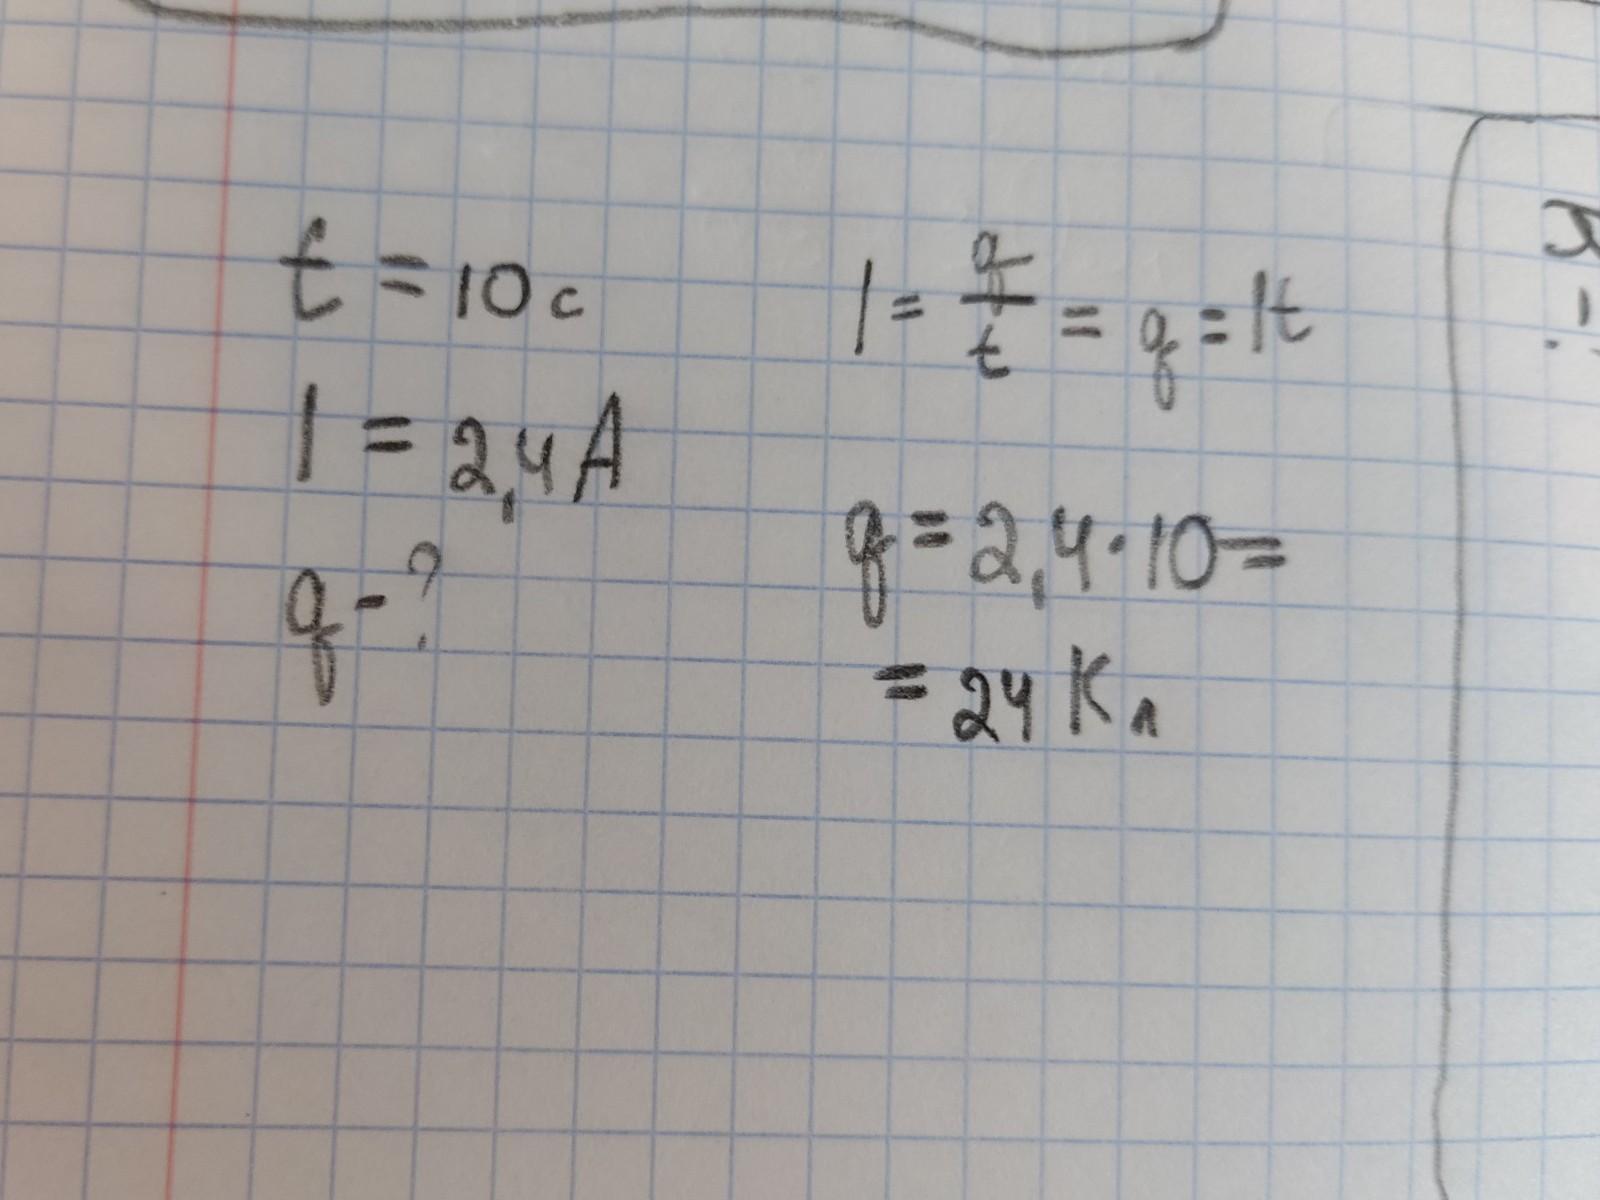 t = 10 с
I = 2,4 А
q - ?
I = q/t = q = It
q = 2,4 · 10 =
= 24 Кл